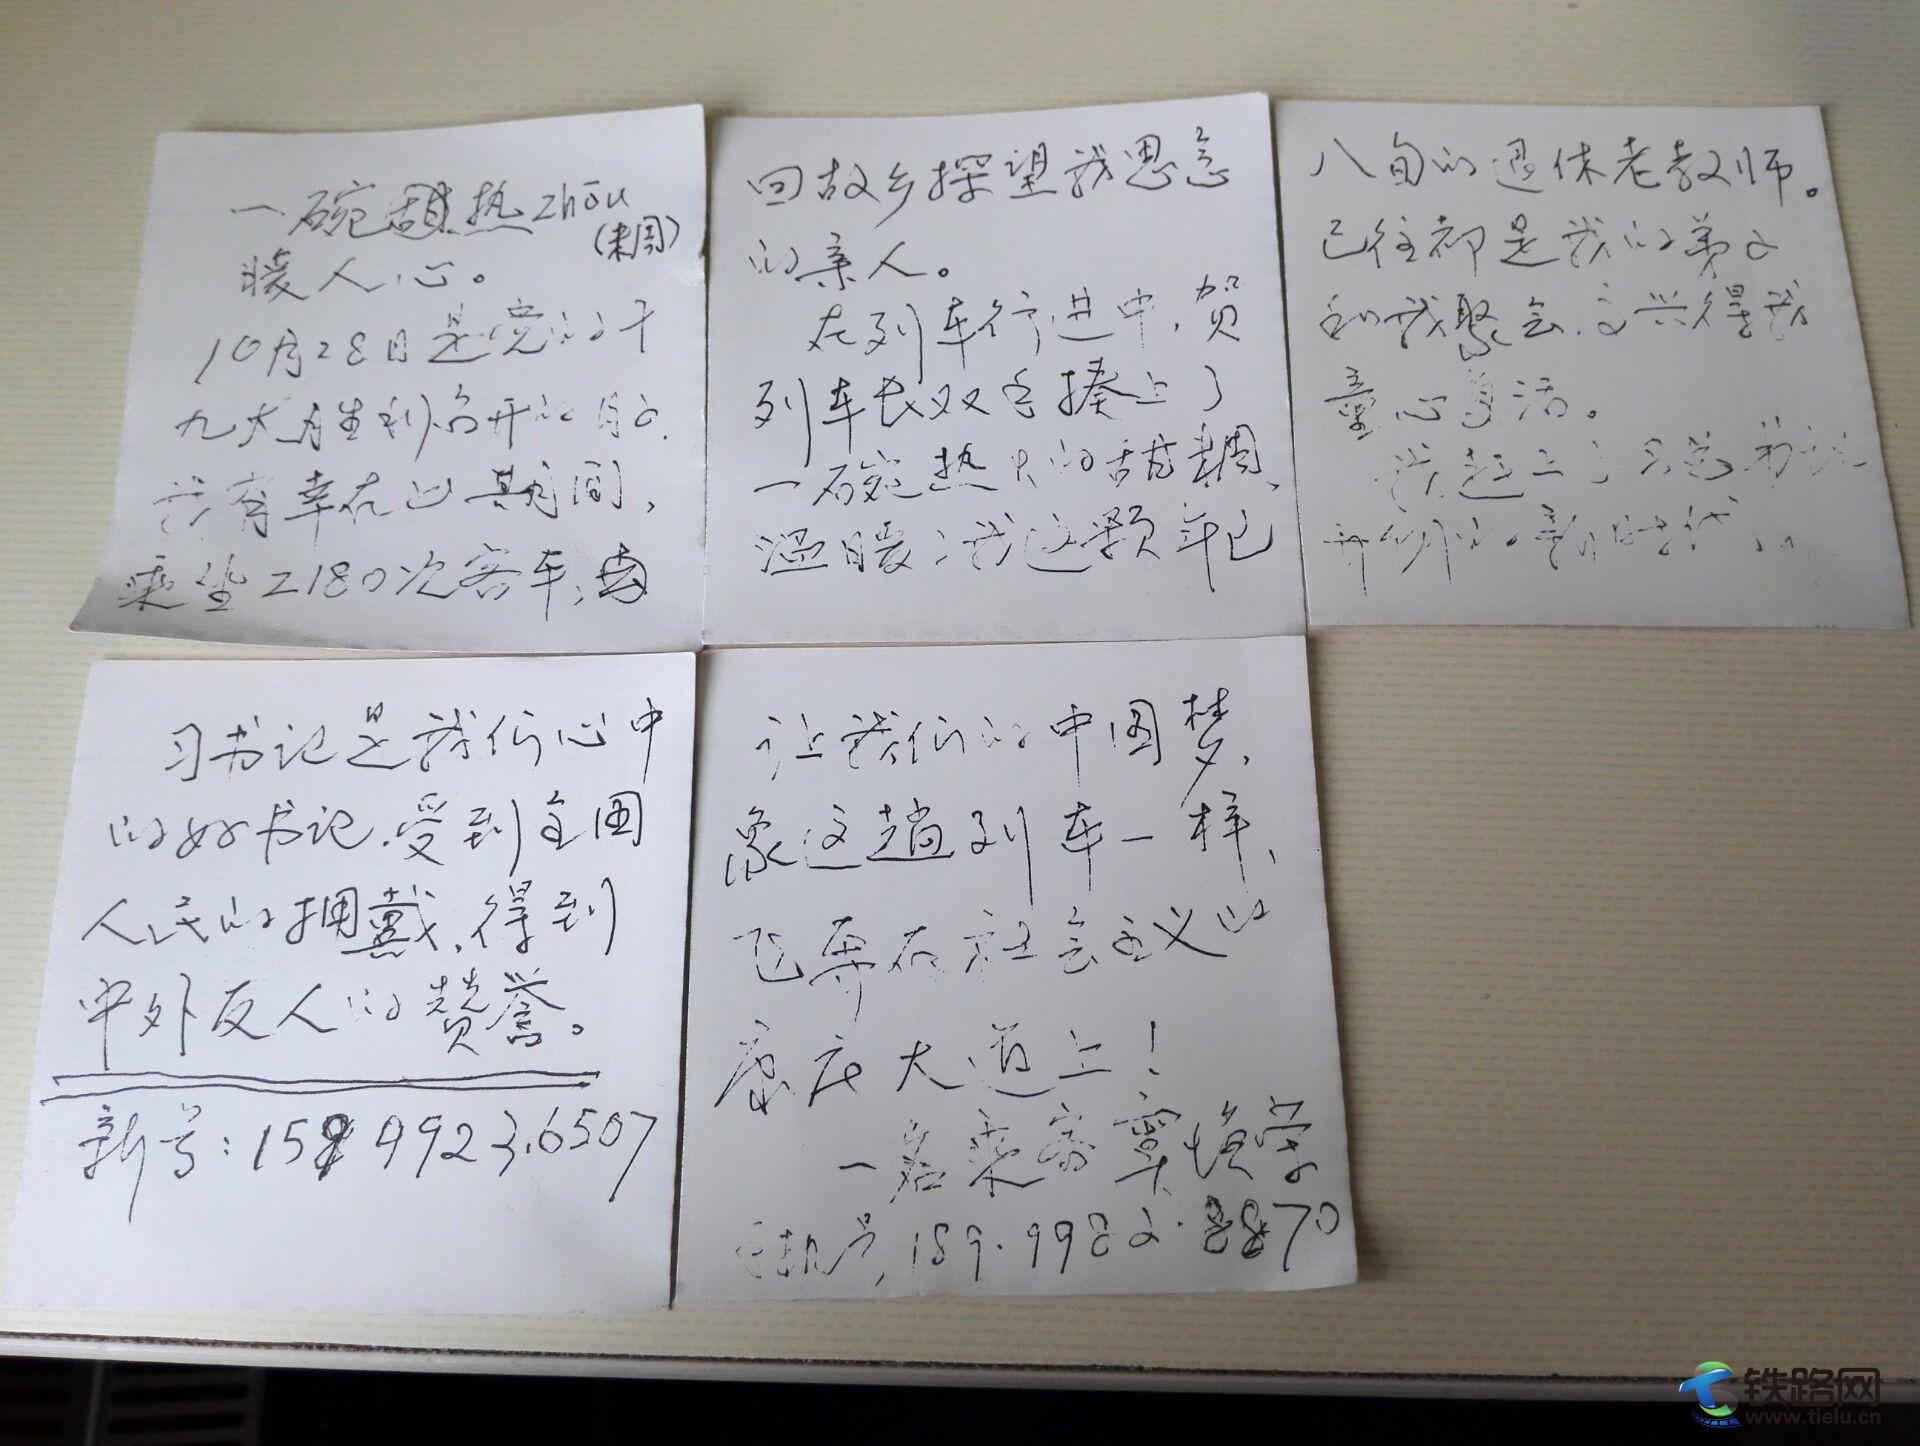 一碗甜热zhōu
(粥)
暖人心。
10月28日是党的十
九大胜利召开的日子.
我有幸在此期间,
乘坐Z180次客车,
回故乡探望我思念
的亲人。
在列车行进中,贺
列车长双手揍上了
一碗热 的甜粥,
温暖了我这颗年已
八旬的退休老教师。
已往都是我的弟子
和我聚会,高兴得我
童心复活。
我赶上了习总书记
开创的新时代,
习书记是我们心中
的好书记.受到全国
人民的拥戴,得到
中外友人的赞誉。
新号:15 9923.6507
让我们的中国梦,
象这趟列车一样,
飞奔在社会主义的
康庄大道上!
一名乘客 学
手机号,189.9982.8870
铁路网
www.tielu.cn